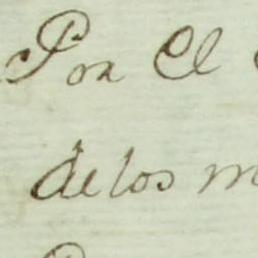 Por El
de los